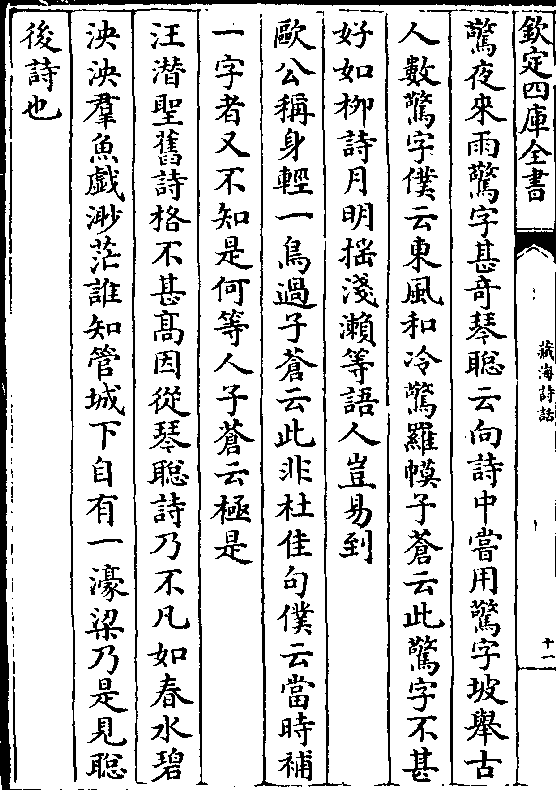 欽定四庫全書
藏海詩話
十一
驚夜來雨驚字甚竒琴聦云向詩中嘗用驚字坡舉古
人數驚字僕云東風和冷驚羅幙子蒼云此驚字不甚
好如栁詩月明揺淺瀨等語人豈易到
歐公稱身輕一鳥過子蒼云此非杜佳句僕云當時補
一字者又不知是何等人子蒼云極是
汪潛聖舊詩格不甚髙因從琴聦詩乃不凡如春水碧
泱泱羣魚戲渺茫誰知管城下自有一濠梁乃是見聦
後詩也